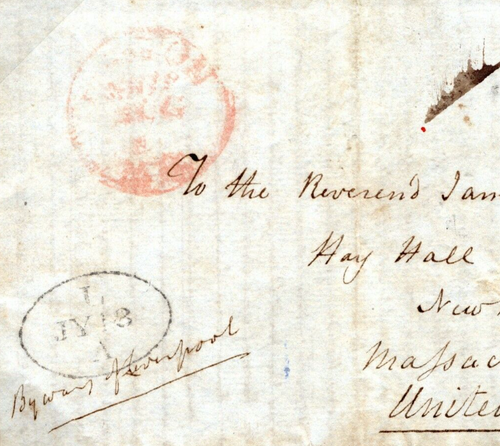 To the Reverend Jam
Hay Hall
New
Massac
United
L
JY 18
A
By way of Liverpool